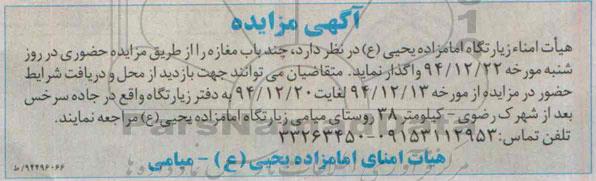 آگهی مزایده
هیأت امناء زیارتگاه امامزاده یحیی (ع) در نظر دارد، چند باب مغازه را از طریق مزایده حضوری در روز
شنبه مورخه ۹۴/۱۲/۲۲ واگذار نماید. متقاضیان می توانند جهت بازدید از محل و دریافت شرایط
حضور در مزایده از مورخه ۹۴/۱۲/۱۳ لغایت ۹۴/۱۲/۲۰ به دفتر زیارتگاه واقع در جاده سرخس
بعد از شهرک رضوی - کیلومتر ۳۸ روستای میامی زیارتگاه امامزاده یحیی(ع) مراجعه نمایند.
تلفن تماس: ۰۹۱۵۳۱۱۲۹۵۳-۳۳۲۶۳۴۵۰
هیأت امنای امامزاده یحیی (ع) - میامی
۹۴۴۹۶۰۶۶/ط